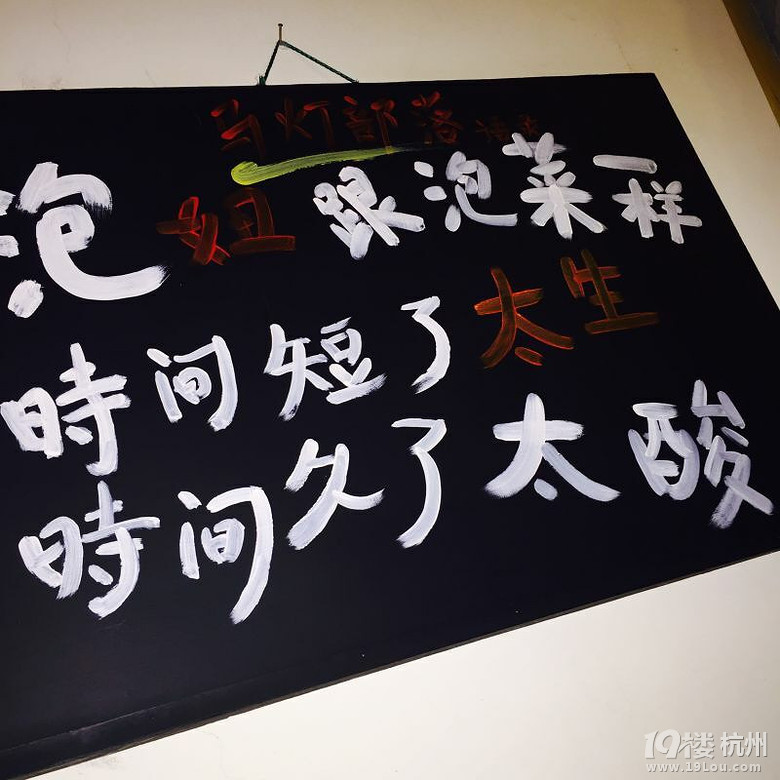 马灯部落
泡妞跟泡菜一样
時间短了太生
時间久了太酸
19楼 杭州
www.19Lou.com